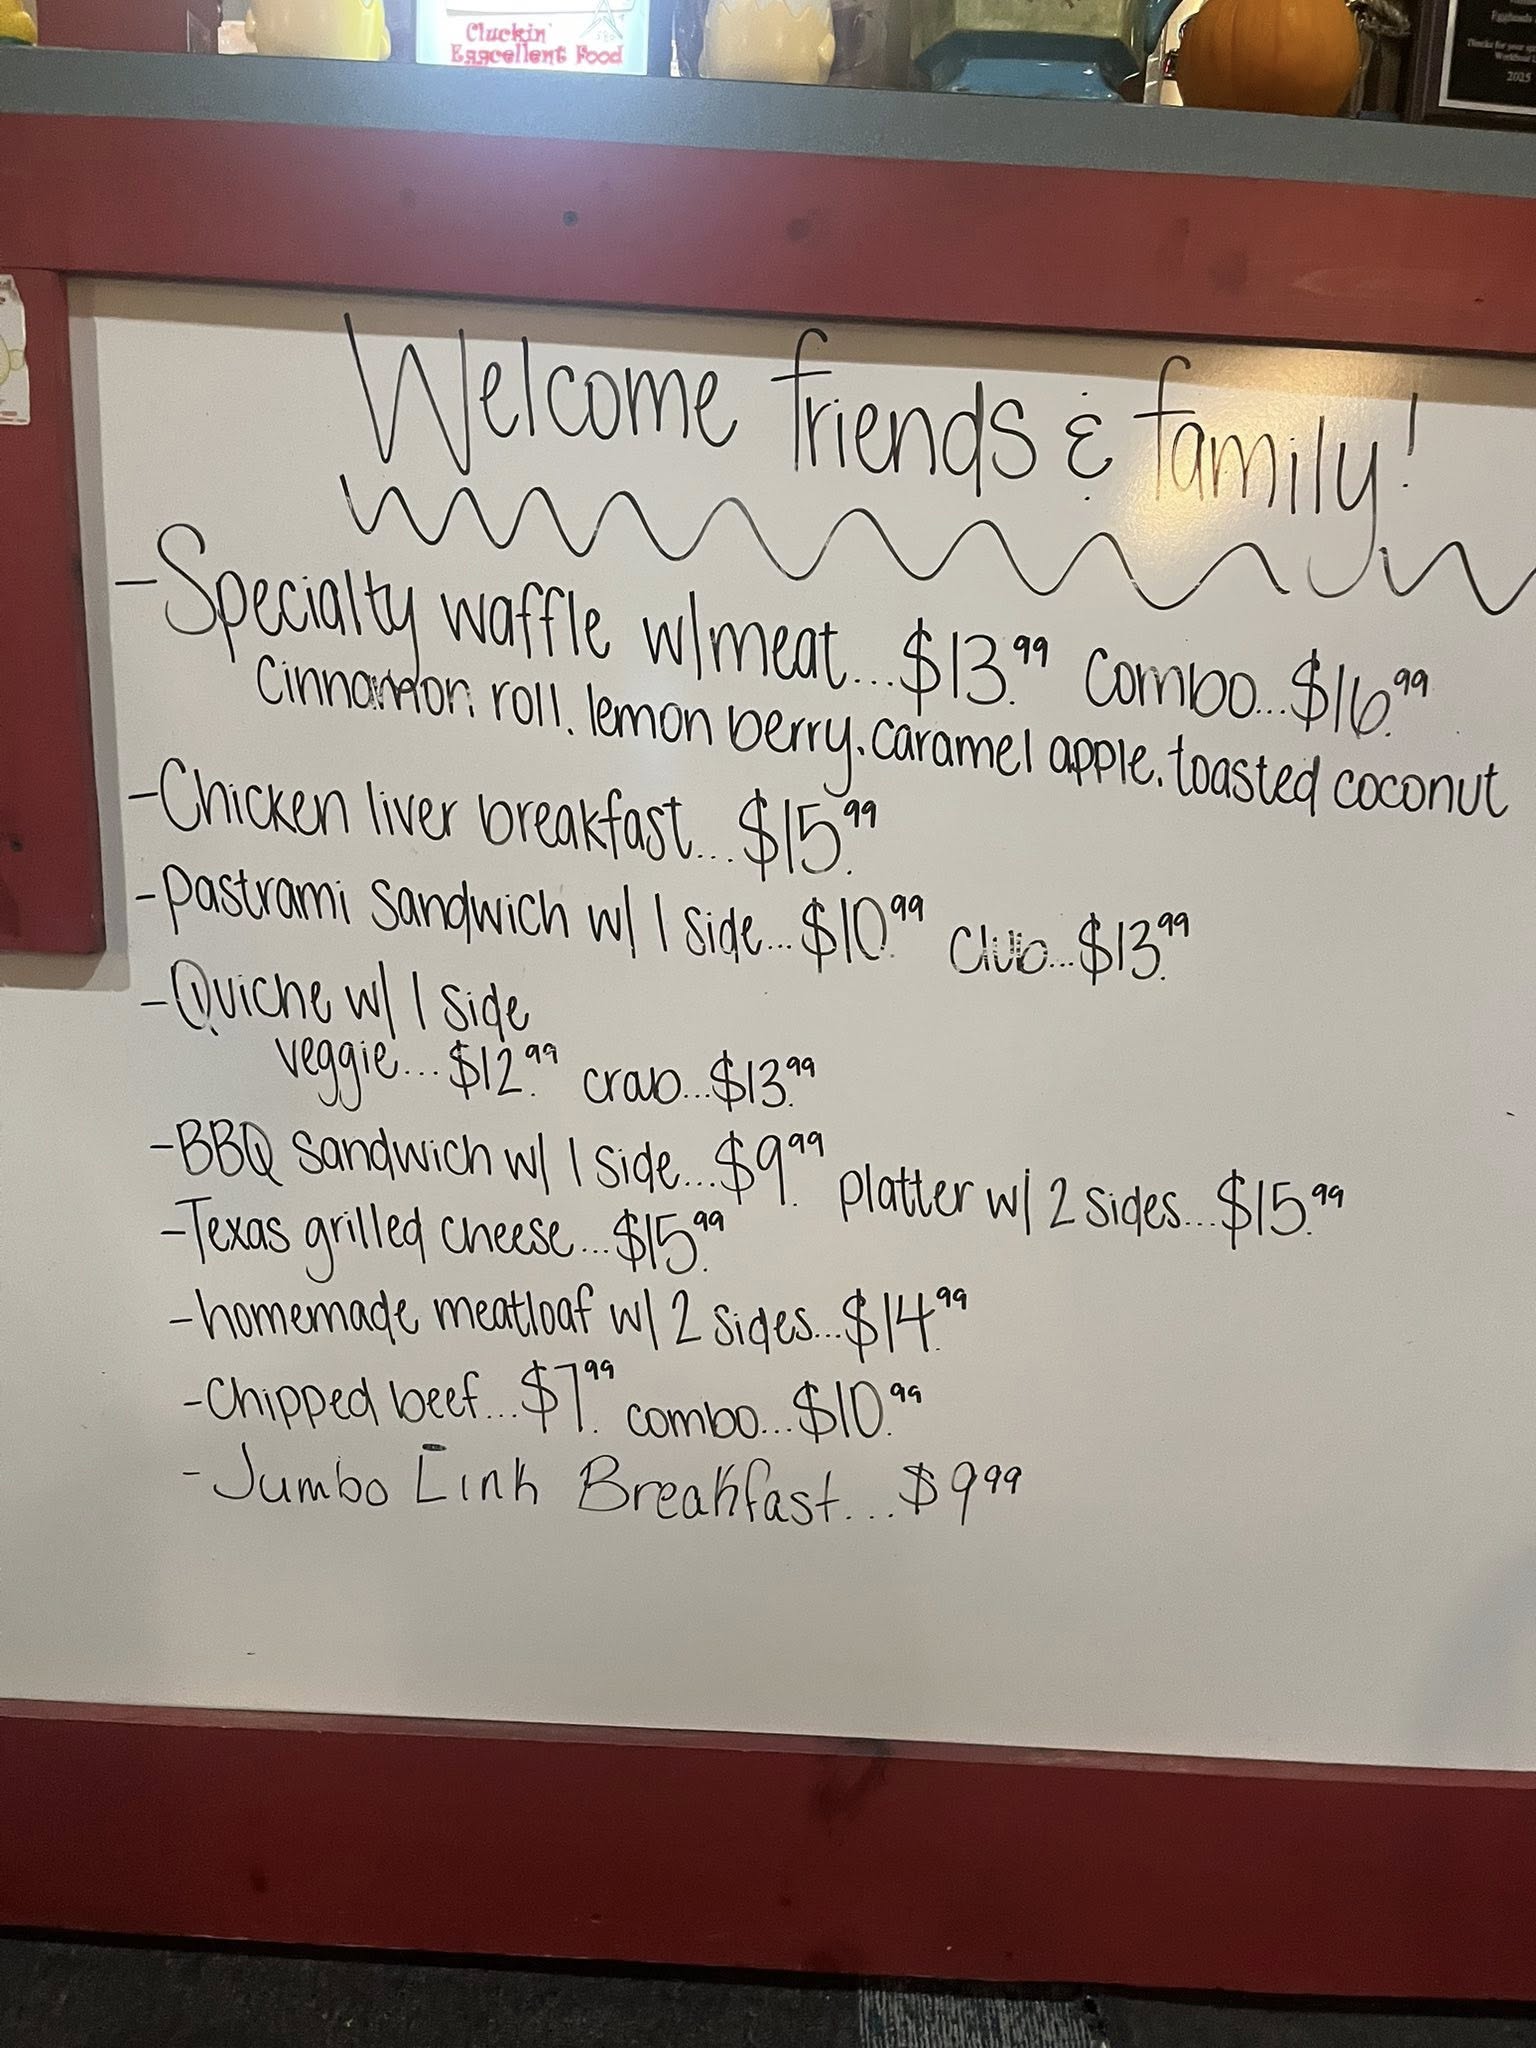 Cluckin'
Eggcellent Food
2025
Welcome friends & family!
-Specialty waffle w/meat...$13.99 Combo...$16.99
Cinnamon roll. lemon berry. caramel apple. toasted coconut
-Chicken liver breakfast...$15.99
-Pastrami sandwich w/ 1 side...$10.99 Club...$13.99
-Quiche w/ 1 side
veggie...$12.99 crab...$13.99
-BBQ sandwich w/ 1 side...$9.99 platter w/ 2 sides...$15.99
-Texas grilled cheese...$15.99
-homemade meatloaf w/ 2 sides...$14.99
-Chipped beef...$7.99 combo...$10.99
-Jumbo Link Breakfast...$9.99